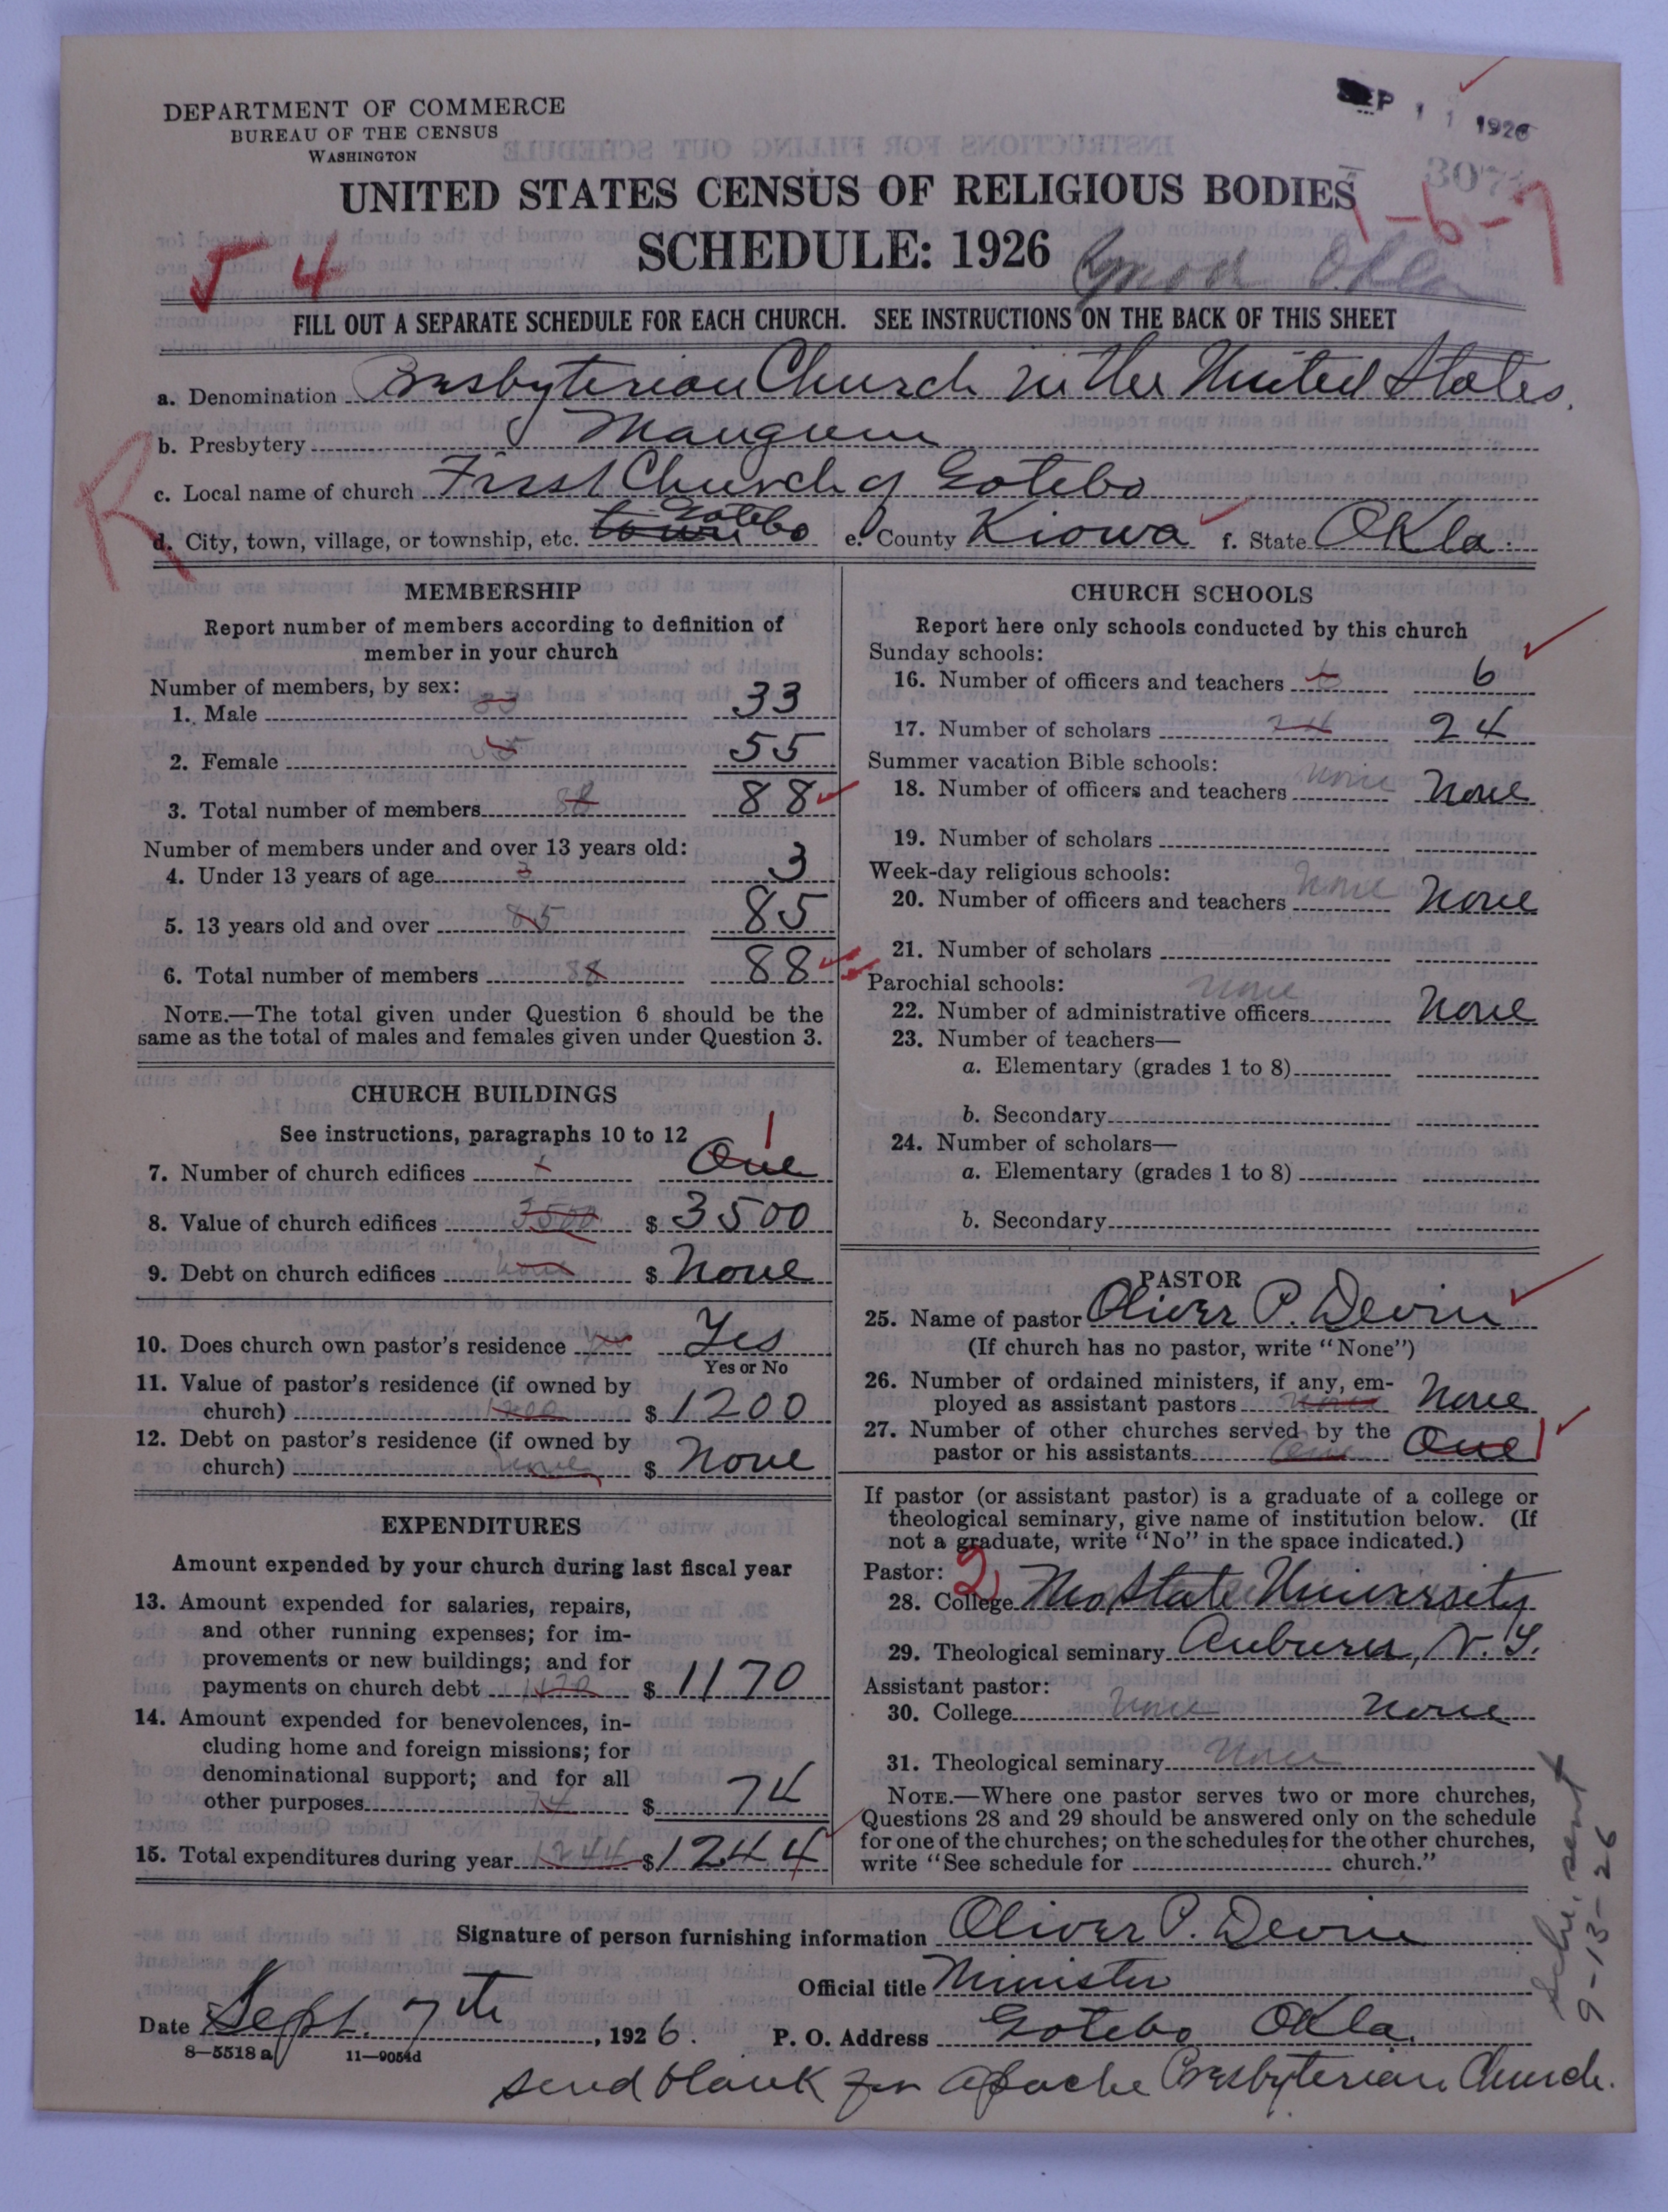 DEPARTMENT OF COMMERCE
BUREAU OF THE CENSUS
WASHINGTON
SEP 11 1926
UNITED STATES CENSUS OF RELIGIOUS BODIES
1-6-7
SCHEDULE: 1926
Okla
54
FILL OUT A SEPARATE SCHEDULE FOR EACH CHURCH. SEE INSTRUCTIONS ON THE BACK OF THIS SHEET
a. Denomination Presbyterian Church in the United States.
b. Presbytery Mangum
R
c. Local name of church First Church of Gotebo
d. City, town, village, or township, etc. town Gotebo e. County Kiowa f. State Okla.
MEMBERSHIP
Report number of members according to definition of
member in your church
Number of members, by sex:
1. Male 33 33
2. Female 55 55
3. Total number of members 88 88
Number of members under and over 13 years old:
4. Under 13 years of age 3 3
5. 13 years old and over 85 85
6. Total number of members 88 88
NOTE.—The total given under Question 6 should be the
same as the total of males and females given under Question 3.
CHURCH BUILDINGS
See instructions, paragraphs 10 to 12
7. Number of church edifices 1 One 1
8. Value of church edifices 3500 $ 3500
9. Debt on church edifices none $ None
10. Does church own pastor's residence Yes
Yes or No
11. Value of pastor's residence (if owned by
church) 1200 $ 1200
12. Debt on pastor's residence (if owned by
church) none $ None
EXPENDITURES
Amount expended by your church during last fiscal year
13. Amount expended for salaries, repairs,
and other running expenses; for im-
provements or new buildings; and for
payments on church debt 1170 $ 1170
14. Amount expended for benevolences, in-
cluding home and foreign missions; for
denominational support; and for all
other purposes 74 $ 74
15. Total expenditures during year 1244 $ 1244
CHURCH SCHOOLS
Report here only schools conducted by this church
Sunday schools:
16. Number of officers and teachers 6 6
17. Number of scholars 24 24
Summer vacation Bible schools:
18. Number of officers and teachers none None
19. Number of scholars
Week-day religious schools:
20. Number of officers and teachers none None
21. Number of scholars
Parochial schools:
22. Number of administrative officers none None
23. Number of teachers—
a. Elementary (grades 1 to 8)
b. Secondary
24. Number of scholars—
a. Elementary (grades 1 to 8)
b. Secondary
PASTOR
25. Name of pastor Oliver P. Devin
(If church has no pastor, write "None")
26. Number of ordained ministers, if any, em-
ployed as assistant pastors none None
27. Number of other churches served by the
pastor or his assistants One One 1
If pastor (or assistant pastor) is a graduate of a college or
theological seminary, give name of institution below. (If
not a graduate, write "No" in the space indicated.)
Pastor: 2
28. College Mo State University
29. Theological seminary Auburn, N.Y.
Assistant pastor:
30. College none None
31. Theological seminary None
NOTE.—Where one pastor serves two or more churches,
Questions 28 and 29 should be answered only on the schedule
for one of the churches; on the schedules for the other churches,
write "See schedule for church."
Sche. sent
9-13-26
Signature of person furnishing information Oliver P. Devin
Official title Minister
Date Sept. 7th, 1926. P. O. Address Gotebo Okla.
8—5518 a 11—9054d
Send blank for Apache Presbyterian Church.